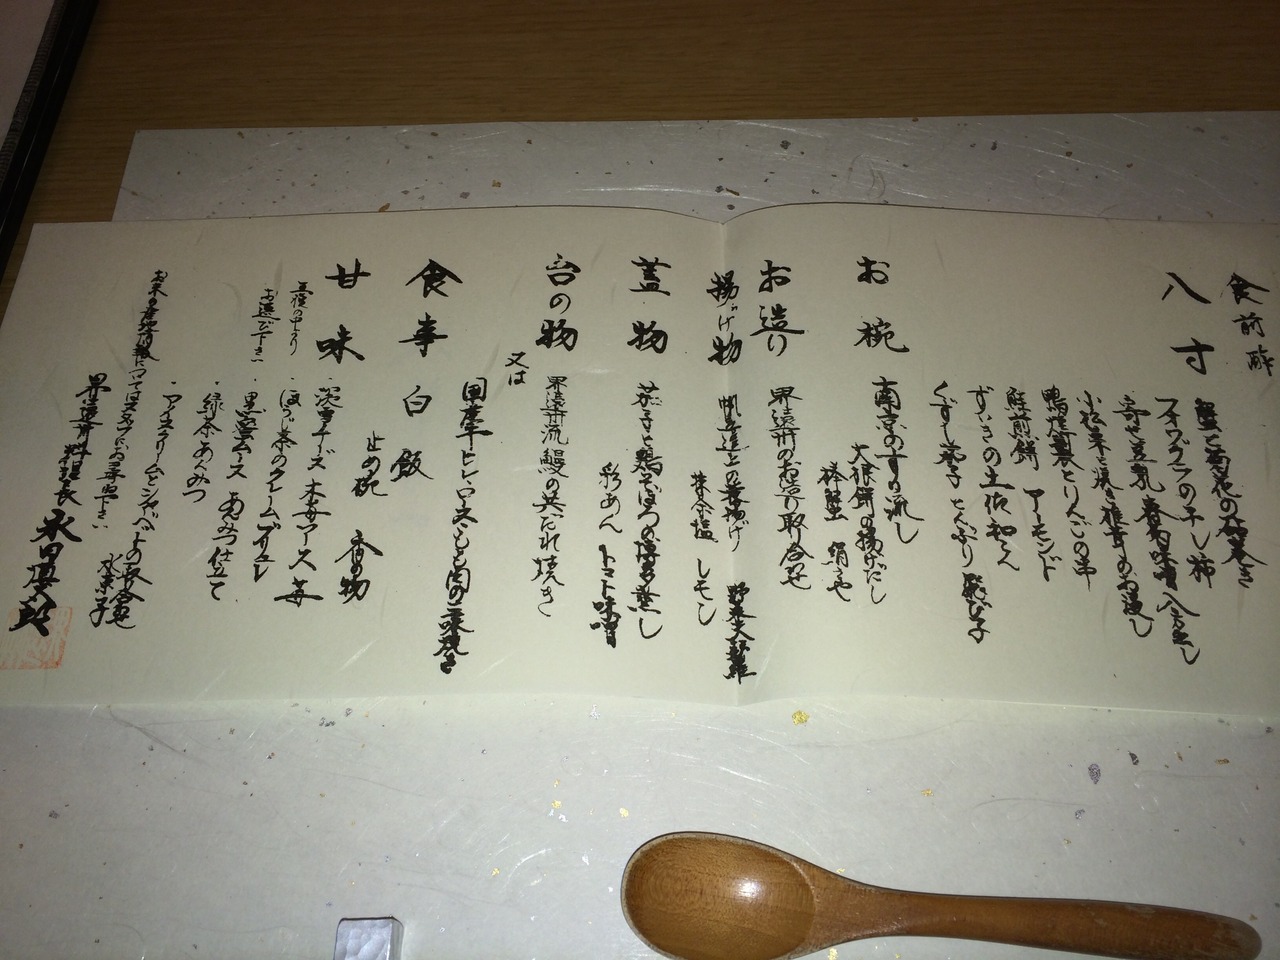 食前酢
八寸
蟹と菊花の砧巻き
フォワグラの干し柿
寄せ豆乳
小松菜と焼き椎茸のお浸し
鴨燻製とりんごの串
鮭煎餅 アーモンド
ずいきの土佐和え
くずし茄子 とんぶり 飛び子
お椀
南京のすり流し
大根餅の揚げだし
蟹 絹さや
お造り
界遠州のお造り取り合せ
揚げ物
野菜天麩羅
抹茶塩 レモン
蓋物
茄子と鶏そぼろの博多蒸し
彩あん トマト味噌
台の物
界遠州流鰻の共だれ焼き
又は
国産牛ヒレ
食事
白飯
止め椀 香の物
甘味
五種の中より
お選び下さい
・淡雪チーズ 木苺ソース 苺
・ほうじ茶のクレームブリュレ
・黒蜜ムース あんみつ仕立て
・緑茶あんみつ
・アイスクリームとシャーベットの取り合せ
水菓子
お米の産地情報についてはスタッフにお尋ね下さい
界遠州 料理長